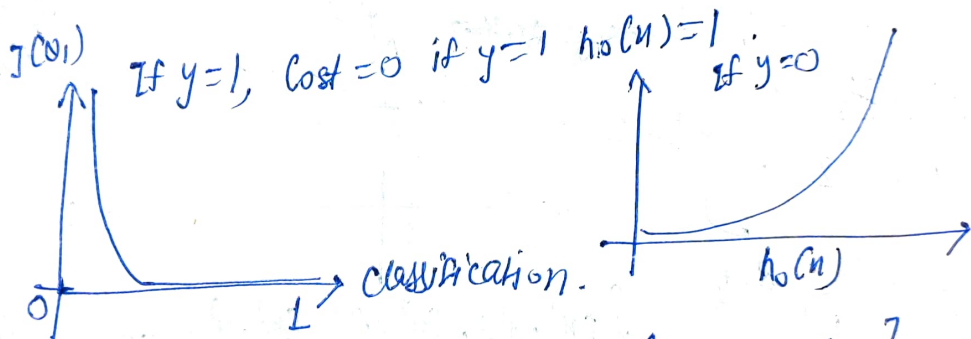 J(θ1)
If y=1, Cost=0 if y=1 hθ(x)=1
If y=0
0
1
classification.
hθ(x)